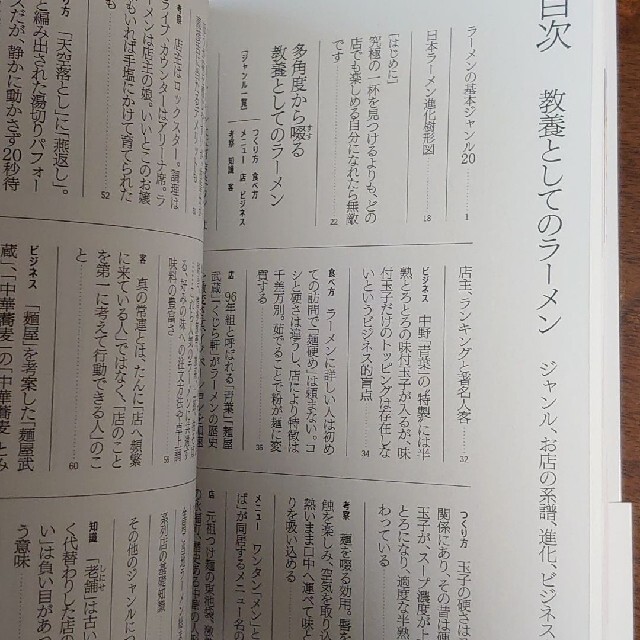 目次
教養としてのラーメン
ジャンル、お店の系譜、進化、ビジネス
ラーメンの基本ジャンル20
8
日本ラーメン進化樹形図
18
[はじめに]
究極の一杯を見つけるよりも、どの
店でも楽しめる自分になれたら無敵
です
22
多角度から啜る
すす
教養としてのラーメン
[ジャンル一覧]
つくり方 食べ方
メニュー 店 ビジネス
考察 知識 客
店主、ランキングと著名人客
32
ビジネス 中野「青葉」の「特製」には半
熟とろとろの味付玉子が入るが、味
付玉子だけのトッピングは存在しな
いというビジネス的盲点
34
食べ方 ラーメンに詳しい人は初め
ての訪問で「麺硬め」は頼まない。コ
シと硬さは違うし、店により特徴は
千差万別。茹でることで粉が麺に変
貌する
36
店 96年組と呼ばれる「青葉」「麺屋
武蔵」「くじら軒」がラーメンの歴史
つくり方 玉子の硬さは
関係にあり、その昔は硬
玉子が、スープ濃度が
とろになり、適度な半熟
わっている
考察 麺を啜る効用。唇を
触を楽しみ、空気を取り込
熱いまま口中へ運べて味と
りを吸い込める
メニュー 「ワンタンメン」と
ば」が同居するメニュー名の
店 元祖つけ麺の東池袋、激
考察 店主はロックスター。調理は
ライブ、カウンターはアリーナ席。ラ
ーメンは店主の娘。いいとこのお嬢
もいれば手塩にかけて育てられた
52
り方 「天空落とし」に「燕返し」。
と編み出された湯切りパフォー
スだが、静かに動かさず20秒待
味料の豊富さ
58
客 真の常連とは、たんに「店へ頻繁
に来ている人」ではなく、「店のこと
を第一に考えて行動できる人」のこ
と
60
ビジネス 「麺屋」を考案した「麺屋武
蔵」、「中華蕎麦」の「中華蕎麦 とみ
系列店の基礎知識
その他のジャンルにつ
知識 「老舗」は古い
しにせ
く代替わりした店の
いは負い目があっ
う意味